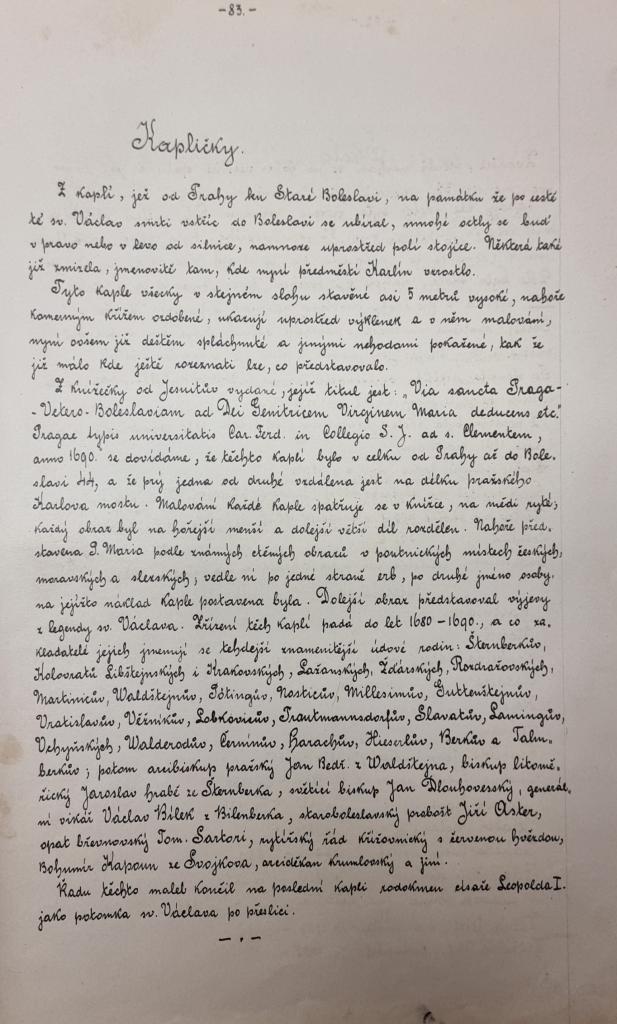 -83.-
Kapličky.
Z kaplí, jež od Prahy ku Staré Boleslavi, na památku že po cestě
té sv. Václav smrti vstříc do Boleslavi se ubíral, mnohé octly se buď
v pravo nebo v levo od silnice, namnoze uprostřed polí stojíce. Některá také
již zmizela, jmenovitě tam, kde nyní předměstí Karlín vzrostlo.
Tyto kaple všecky v stejném slohu stavěné asi 5 metrů vysoké, nahoře
kamenným křížem ozdobené, ukazují uprostřed výklenek a v něm malování,
nyní ovšem již deštěm spláchnuté a jinými nehodami pokažené, tak že
již málo kde ještě rozeznati lze, co představovalo.
Z knížečky od Jesuitův vydané, jejíž titul jest: „Via sancta Praga-
-Vetero-Boleslaviam ad Dei Genitricem Virginem Maria deducens etc."
Pragae typis universitatis Car. Ferd. in Collegio S. J. ad s. Clementem,
anno 1690." se dovídáme, že těchto kaplí bylo v celku od Prahy až do Bole-
slavi 44, a že prý jedna od druhé vzdálena jest na délku pražského
Karlova mostu. Malování každé kaple spatřuje se v knížce, na mědi ryté;
každý obraz byl na hořejší menší a dolejší větší díl rozdělen. Nahoře před-
stavena P. Maria podle známých ctěných obrazů v poutnických místech českých,
moravských a slezských; vedle ní po jedné straně erb, po druhé jméno osoby,
na jejížto náklad kaple postavena byla. Dolejší obraz představoval výjevy
z legendy sv. Václava. Zřízení těch kaplí padá do let 1680-1690., a co za-
kladatelé jejich jmenují se tehdejší znamenitější údové rodin: Šternberkův,
Kolovratů Libštejnských i Krakovských, Lažanských, Žďárských, Rozdražovských,
Martiniců̊v, Waldštejnův, Pötingův, Nosticův, Millesimův, Guttenštejnův,
Vratislavův, Věžníkův, Lobkoviců̊v, Trautmannsdorfův, Slavatův, Lamingův,
Vchynských, Walderodův, Černínův, Harachův, Hieserlův, Berkův a Talm-
berkův; potom arcibiskup pražský Jan Bedř. z Waldštejna, biskup litomě-
řický Jaroslav hrabě ze Šternberka, světící biskup Jan Dlouhoveský, generál-
ní vikář Václav Bílek z Bilenberka, staroboleslavský probošt Jiří Aster,
opat břevnovský Tom. Sartori, rytířský řád křížovnický s červenou hvězdou,
Bohumír Kapoun ze Svojkova, arciděkan krumlovský a jiní.
Řadu těchto maleb končil na poslední kapli rodokmen císaře Leopolda I.
jako potomka sv. Václava po přeslici.